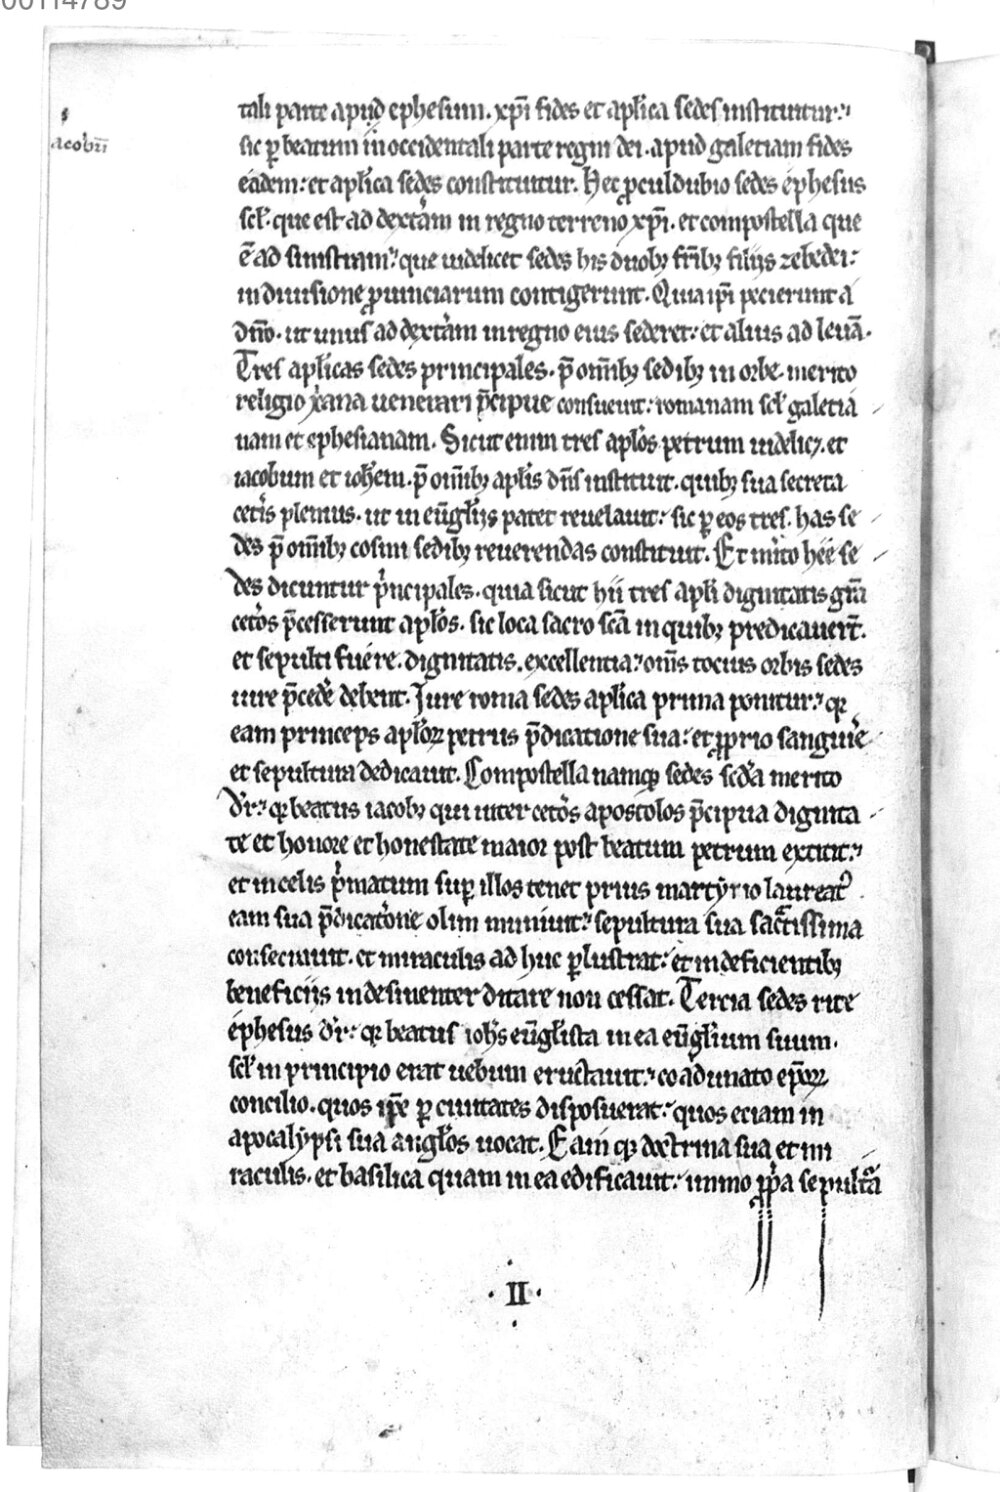 00114789
tali parte apud ephesum. xp̄i fides et aplica sedes instituitur:
iacobū
sic ꝑ beatum in occidentali parte regni dei. apud galeciam fides
eadem: et aplica sedes constituitur. Hec ꝓculdubio sedes ephesus
scl. que est ad dextram in regno terreno xp̄i. et compostella que
ē ad sinistram: que uidelicet sedes his duobꝫ fribꝫ filiis zebedei:
in diuisione ꝓuinciarum contigerunt. Quia ip̄i pecierunt a
dn̄o. ut unus ad dextram in regno eius sederet: et alius ad leuā.
Tres aplicas sedes principales. p̄ omībꝫ sedibꝫ in orbe. merito
religio xana uenerari p̄cipue consueuit: romanam scl galecia
nam et ephesianam. Sicut enim tres aplos petrum uidelicꝫ. et
iacobum et iohem. p̄ omībꝫ aplis dn̄s instituit. quibꝫ sua secreta
ceteris plenius. ut in euḡliis patet reuelauit: sic ꝑ eos tres. has se
des p̄ omībꝫ cosmi sedibꝫ reuerendas constituit. Et mito hee se
des dicuntur pncipales. quia sicut hii tres apli dignitatis grā
cetos p̄cesserunt aplos. sic loca sacro scā in quibꝫ predicauert̄.
et sepulti fuere. dignitatis. excellentia: om̄s tocius orbis sedes
iure p̄cedē debent. Jure roma sedes aplica prima ponitur: qꝛ
eam princeps aploꝝ petrus p̄dicatione sua: et ꝓprio sanguīe
et sepultura dedicauit. Compostella namqꝫ sedes scda merito
dr: qꝛ beatus iacobꝫ qui inter cetos apostolos p̄cipua dignita
te et honore et honestate maior post beatum petrum extitit:
et in celis pmatum suꝑ illos tenet prius martyrio laureatꝰ
eam sua p̄dicatone olim muniuit: sepultura sua sactissima
consecrauit. et miraculis ad huc ꝑlustrat: et indeficientibꝫ
beneficiis indesinenter ditare non cessat. Tercia sedes rite
ephesus dr: qꝛ beatus iohs euḡlista in ea euḡlium suum.
scl in principio erat uebum eructauit: coadunato ep̄oꝝ
concilio. quos ip̄e ꝑ ciuitates disposuerat: quos eciam in
apocalypsi sua anglos uocat. Eam qꝫ doctrina sua et mi
raculis. et basilica quam in ea edificauit: immo ꝓp̄a sepultā
· II ·